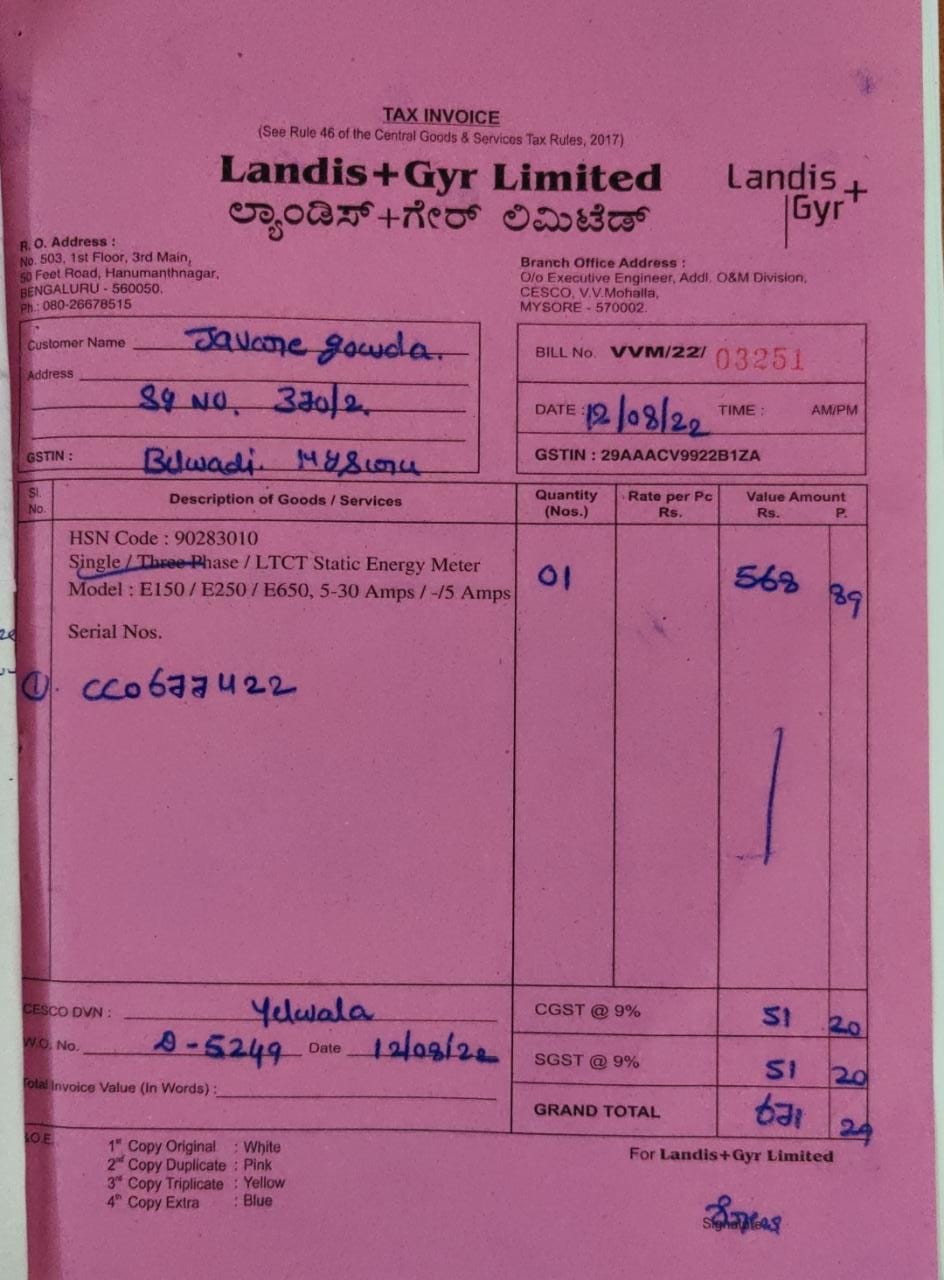 TAX INVOICE
(See Rule 46 of the Central Goods & Services Tax Rules, 2017)
Landis+Gyr Limited
ಲ್ಯಾಂಡಿಸ್+ಗೇರ್ ಲಿಮಿಟೆಡ್
Landis
Gyr+
R. O. Address :
No. 503, 1st Floor, 3rd Main,
50 Feet Road, Hanumanthnagar,
BENGALURU - 560050.
Ph.: 080-26678515
Branch Office Address :
O/o Executive Engineer, Addl. O&M Division,
CESCO, V.V.Mohalla,
MYSORE - 570002.
Customer Name Javare gowda.
Address
Sy NO. 370/2.
GSTIN : Belwadi. Mysuru
BILL No. VVM/22/ 03251
DATE : 12/08/22 TIME : AM/PM
GSTIN : 29AAACV9922B1ZA
Sl. No. Description of Goods / Services Quantity (Nos.) Rate per Pc Rs. Value Amount Rs. P.
HSN Code : 90283010
Single / Three Phase / LTCT Static Energy Meter 01 568 89
Model : E150 / E250 / E650, 5-30 Amps / -/5 Amps
Serial Nos.
①. CC0677422
CESCO DVN : Yelwala
CGST @ 9% 51 20
W.O. No. D-5249 Date 12/08/22
SGST @ 9% 51 20
Total Invoice Value (In Words) :
GRAND TOTAL 671 29
1st Copy Original : White
2nd Copy Duplicate : Pink
3rd Copy Triplicate : Yellow
4th Copy Extra : Blue
For Landis+Gyr Limited